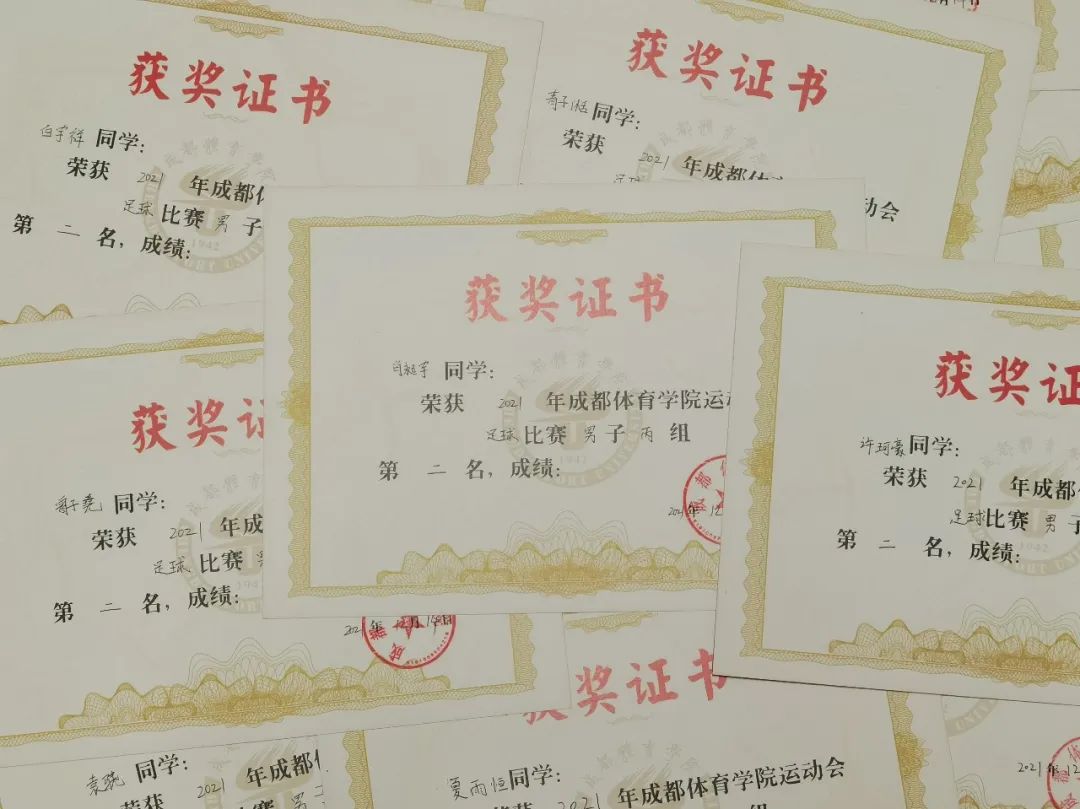 获奖证书
白宇祥 同学:
荣获 2021 年成都体
足球 比赛 男 子
第 二 名,成绩:
获奖证书
同学:
荣获 2021 年成都体
足球
动会
获奖证书
同学:
荣获 2021 年成都体育学院运动
足球 比赛 男 子 丙 组
第 二 名,成绩:
2021年 12
获奖证
许珂豪 同学:
荣获 2021 年成都体
足球 比赛 男 子
第 二 名,成绩:
获奖证
同学:
荣获 2021 年成
足球 比赛 男
第 二 名,成绩:
2021年 12月14日
获奖证书
夏雨恒 同学:
荣获 2021 年成都体育学院运动会
组
同学:
荣获 2021 年成都体
比赛 男 子
2021年 12